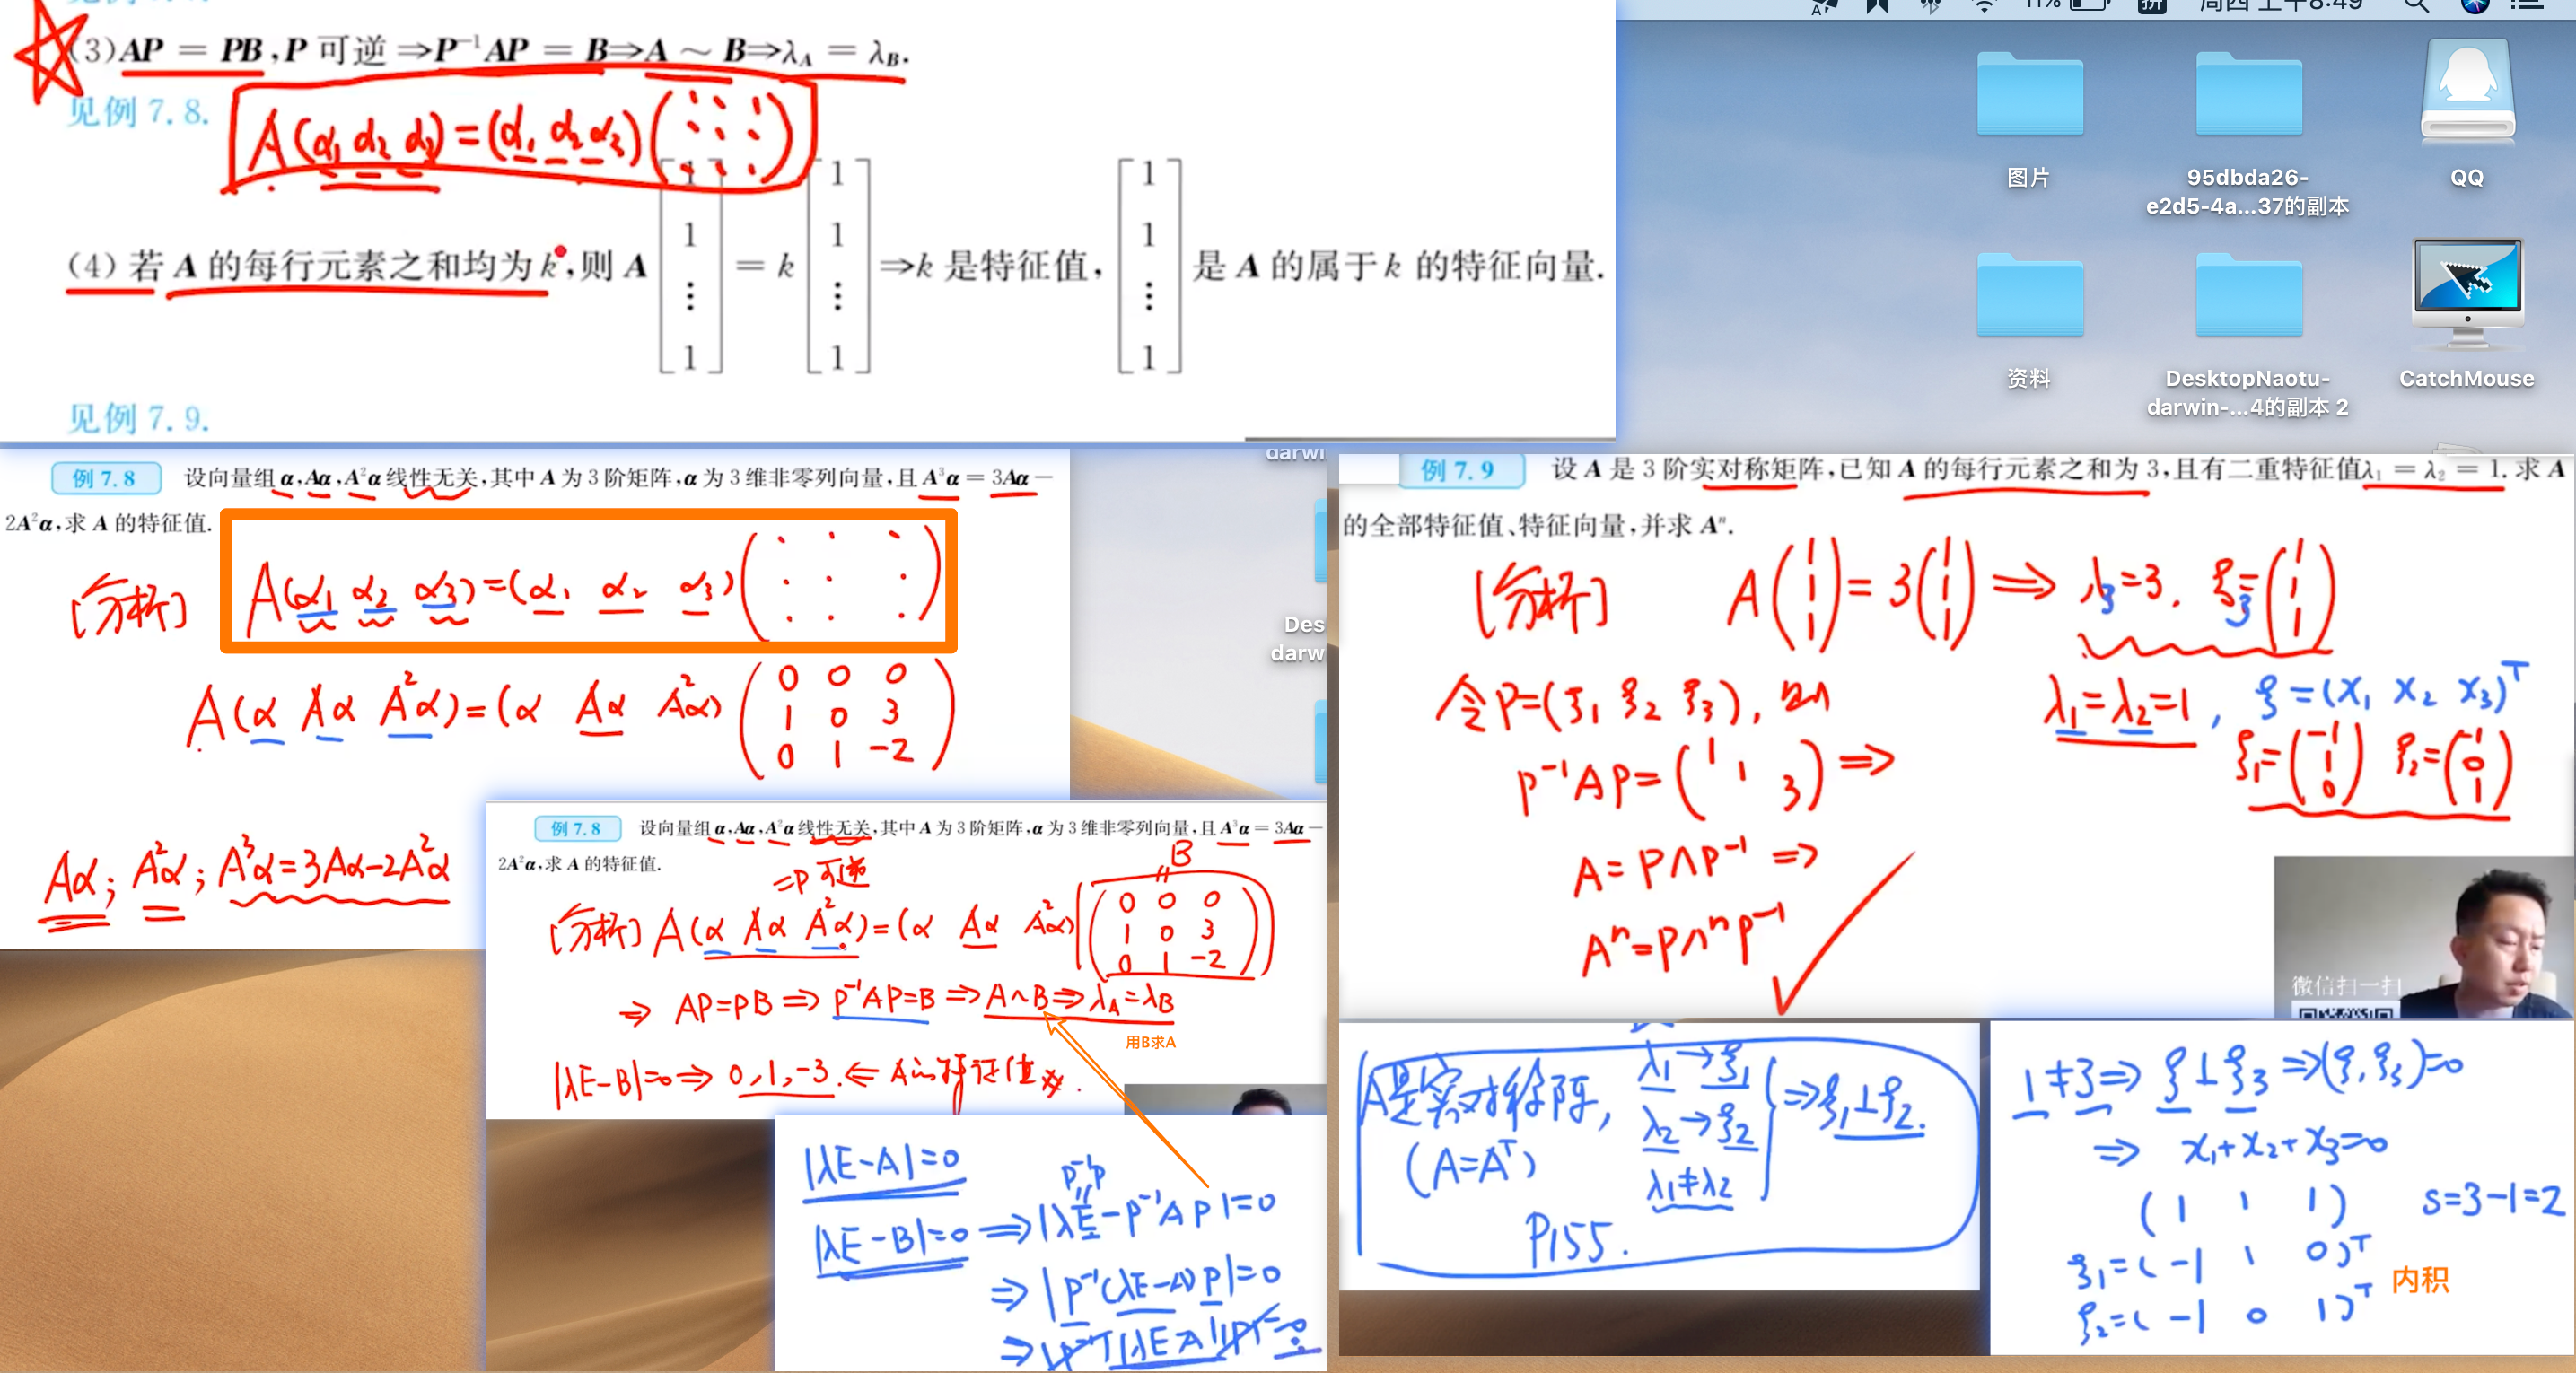 (3) AP = PB, P 可逆 ⇒ P⁻¹AP = B ⇒ A ~ B ⇒ λ_A = λ_B.
见例 7.8.
A(α₁ α₂ α₃) = (α₁ α₂ α₃)
(4) 若 A 的每行元素之和均为 k, 则 A [1 1 ⋮ 1] = k [1 1 ⋮ 1] ⇒ k 是特征值, [1 1 ⋮ 1] 是 A 的属于 k 的特征向量.
见例 7.9.
11% 拼 周四 上午8:49
图片
95dbda26-
e2d5-4a...37的副本
QQ
资料
DesktopNaotu-
darwin-...4的副本 2
CatchMouse
例 7.8 设向量组 α, Aα, A²α 线性无关, 其中 A 为 3 阶矩阵, α 为 3 维非零列向量, 且 A³α = 3Aα −
2A²α, 求 A 的特征值.
[分析] A(α₁ α₂ α₃) = (α₁ α₂ α₃)
A(α Aα A²α) = (α Aα A²α) (0 0 0
1 0 3
0 1 -2)
Aα; A²α; A³α=3Aα-2A²α
darwi
Des
darw
例 7.8 设向量组 α, Aα, A²α 线性无关, 其中 A 为 3 阶矩阵, α 为 3 维非零列向量, 且 A³α = 3Aα −
2A²α, 求 A 的特征值.
=P 可逆
B
[分析] A(α Aα A²α) = (α Aα A²α) (0 0 0
1 0 3
0 1 -2)
⇒ AP=PB ⇒ P⁻¹AP=B ⇒ A~B ⇒ λ_A=λ_B
用B求A
|λE-B|=0 ⇒ 0, 1, -3. ⇐ A的特征值
|λE-A|=0
P⁻¹P
|λE-B|=0 ⇒ |λE-P⁻¹AP|=0
⇒ |P⁻¹(λE-A)P|=0
⇒ |P⁻¹||λE-A||P|=0
例 7.9 设 A 是 3 阶实对称矩阵, 已知 A 的每行元素之和为 3, 且有二重特征值 λ₁ = λ₂ = 1. 求 A
的全部特征值、特征向量, 并求 Aⁿ.
[分析] A(1 1 1) = 3(1 1 1) ⇒ λ₃=3, ξ₃=(1 1 1)
令P=(ξ₁ ξ₂ ξ₃), 则
λ₁=λ₂=1, ξ=(x₁ x₂ x₃)ᵀ
P⁻¹AP=(1 1 3) ⇒
ξ₁=(-1 1 0) ξ₂=(-1 0 1)
A=PΛP⁻¹ ⇒
Aⁿ=PΛⁿP⁻¹
微信扫一扫
A是实对称阵, λ₁→ξ₁
(A=Aᵀ) λ₂→ξ₂ ⇒ ξ₁⊥ξ₂.
λ₁≠λ₂
P155.
1≠3 ⇒ ξ⊥ξ₃ ⇒ (ξ, ξ₃)=0
⇒ x₁+x₂+x₃=0
(1 1 1) s=3-1=2
ξ₁=(-1 1 0)ᵀ
内积
ξ₂=(-1 0 1)ᵀ